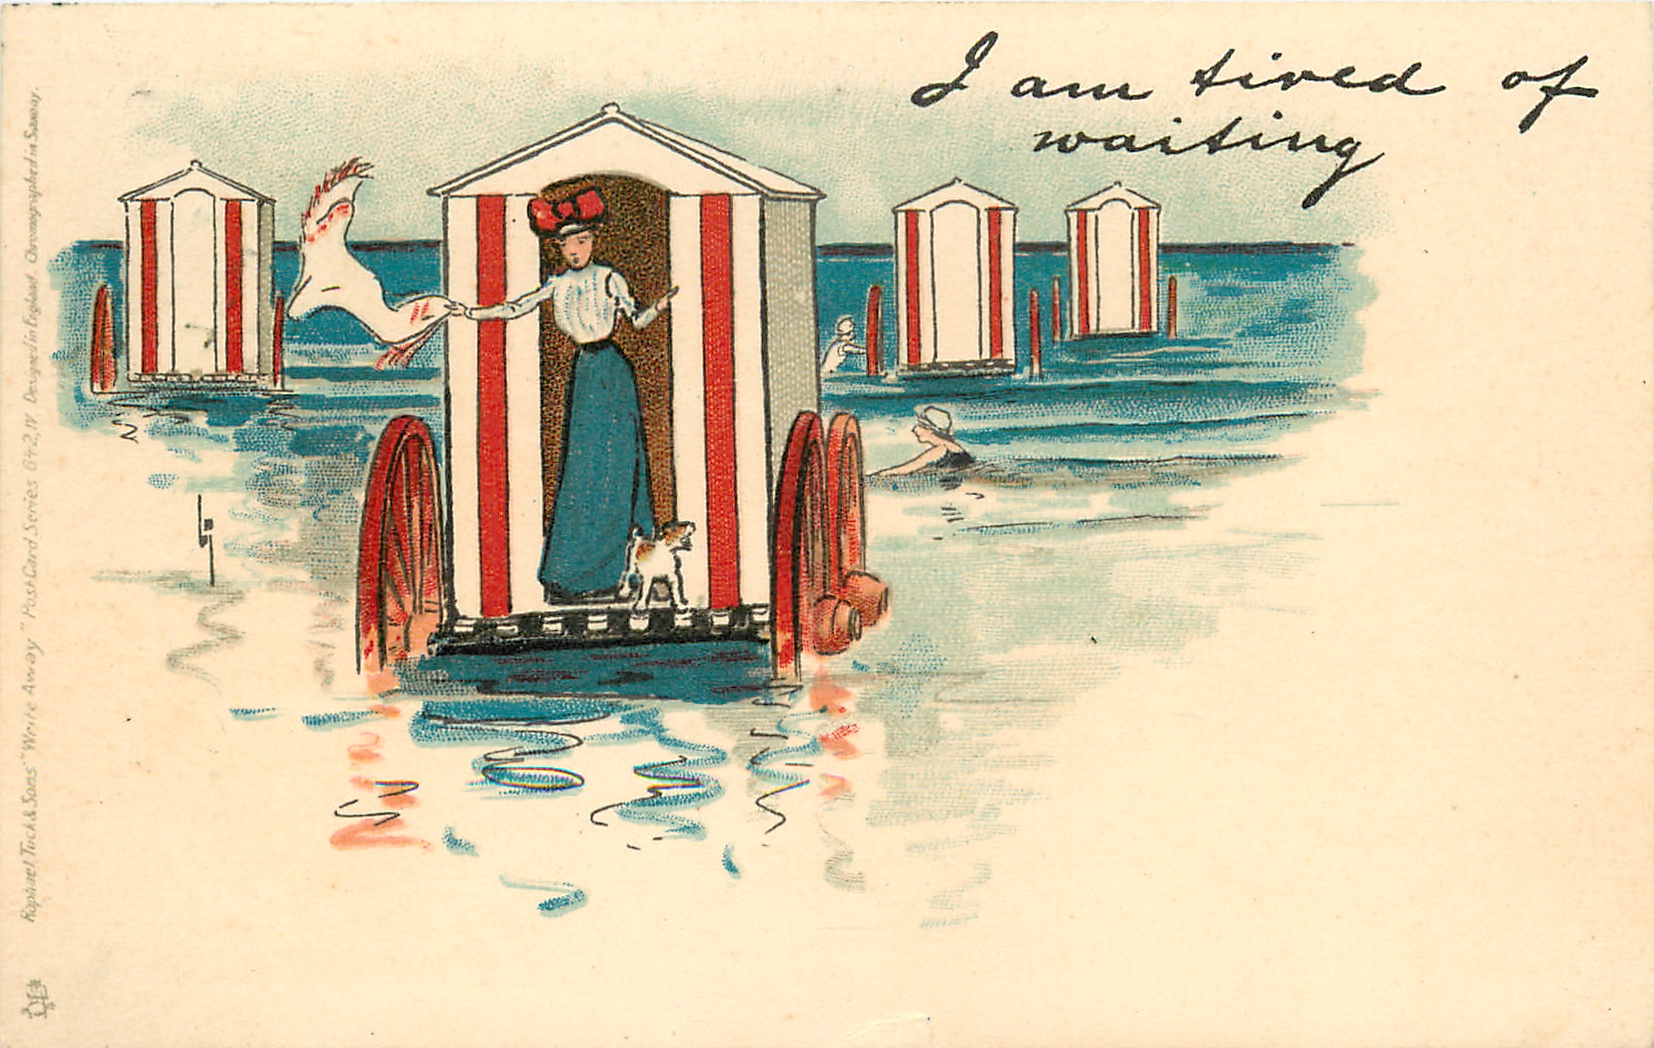 I am tired of
waiting
Raphael Tuck & Sons "Write Away" Post Card Series 642, IV Designed in England. Chromographed in Saxony.